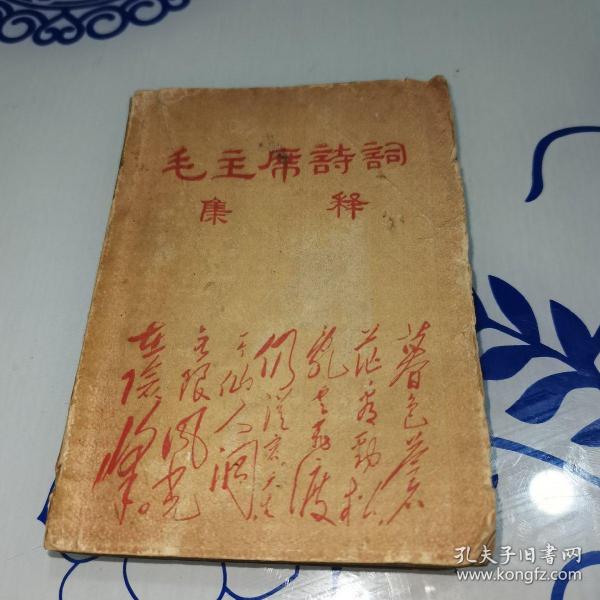 毛主席詩詞
集释
暮色蒼
茫看勁松
乱云飛渡
仍從容天生
一个仙人洞
无限風光
在險峰
孔夫子旧书网
www.kongfz.com